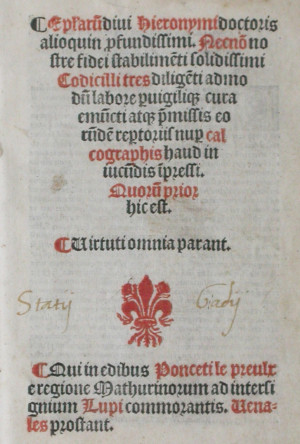 ¶Epl̃arũ diui Hieronymi doctoris
alioquin ꝓfundissimi. Necnõ no
stre fidei stabilimẽti solidissimi
Codicilli tres diligẽti admo
dũ labore ꝑuigiliqꝫ cura
emũcti atqꝫ p̃missis eo
rũdẽ rep̃toriis nuꝑ cal
cographis haud in
iucũdis ĩpressi.
Quorũ prior
hic est.
¶Uirtuti omnia parant.
Statij Gadij
¶Qui in edibus Ponceti le preulx
e regione Mathurinorum ad intersi
gnium Lupi commorantis. Uena-
les prostant.